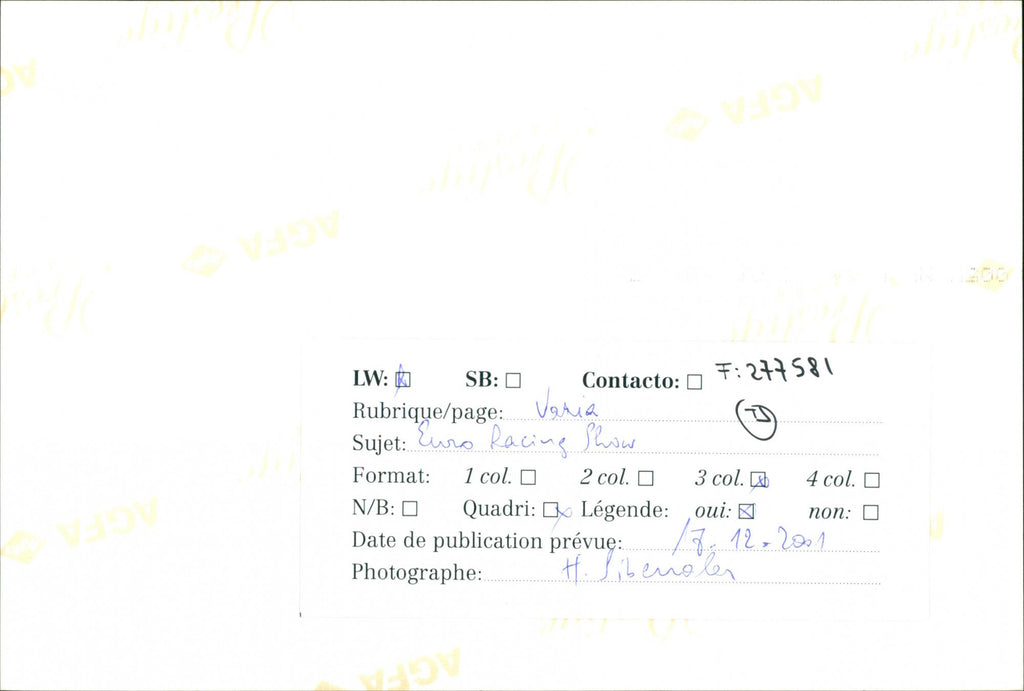 Prestige
AGFA
AGFA
Prestige
AGFA
LW: ☒ SB: ☐ Contacto: ☐ F: 277581
Rubrique/page: Varia TD
Sujet: Euro Racing Show
Format: 1 col. ☐ 2 col. ☐ 3 col. ☒ 4 col. ☐
N/B: ☐ Quadri: ☒ Légende: oui: ☒ non: ☐
Date de publication prévue: 17.12.2001
Photographe: H.
AGFA
AGFA